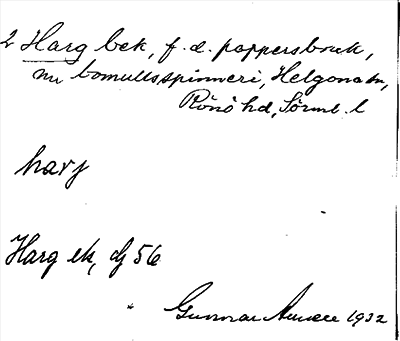 2 Harg bek, f. d. pappersbruk,
nu bomullsspinneri, Helgona sn,
Rönö hd, Sörml. l
harj
Harg ek, dj 56
Gunnar 1932